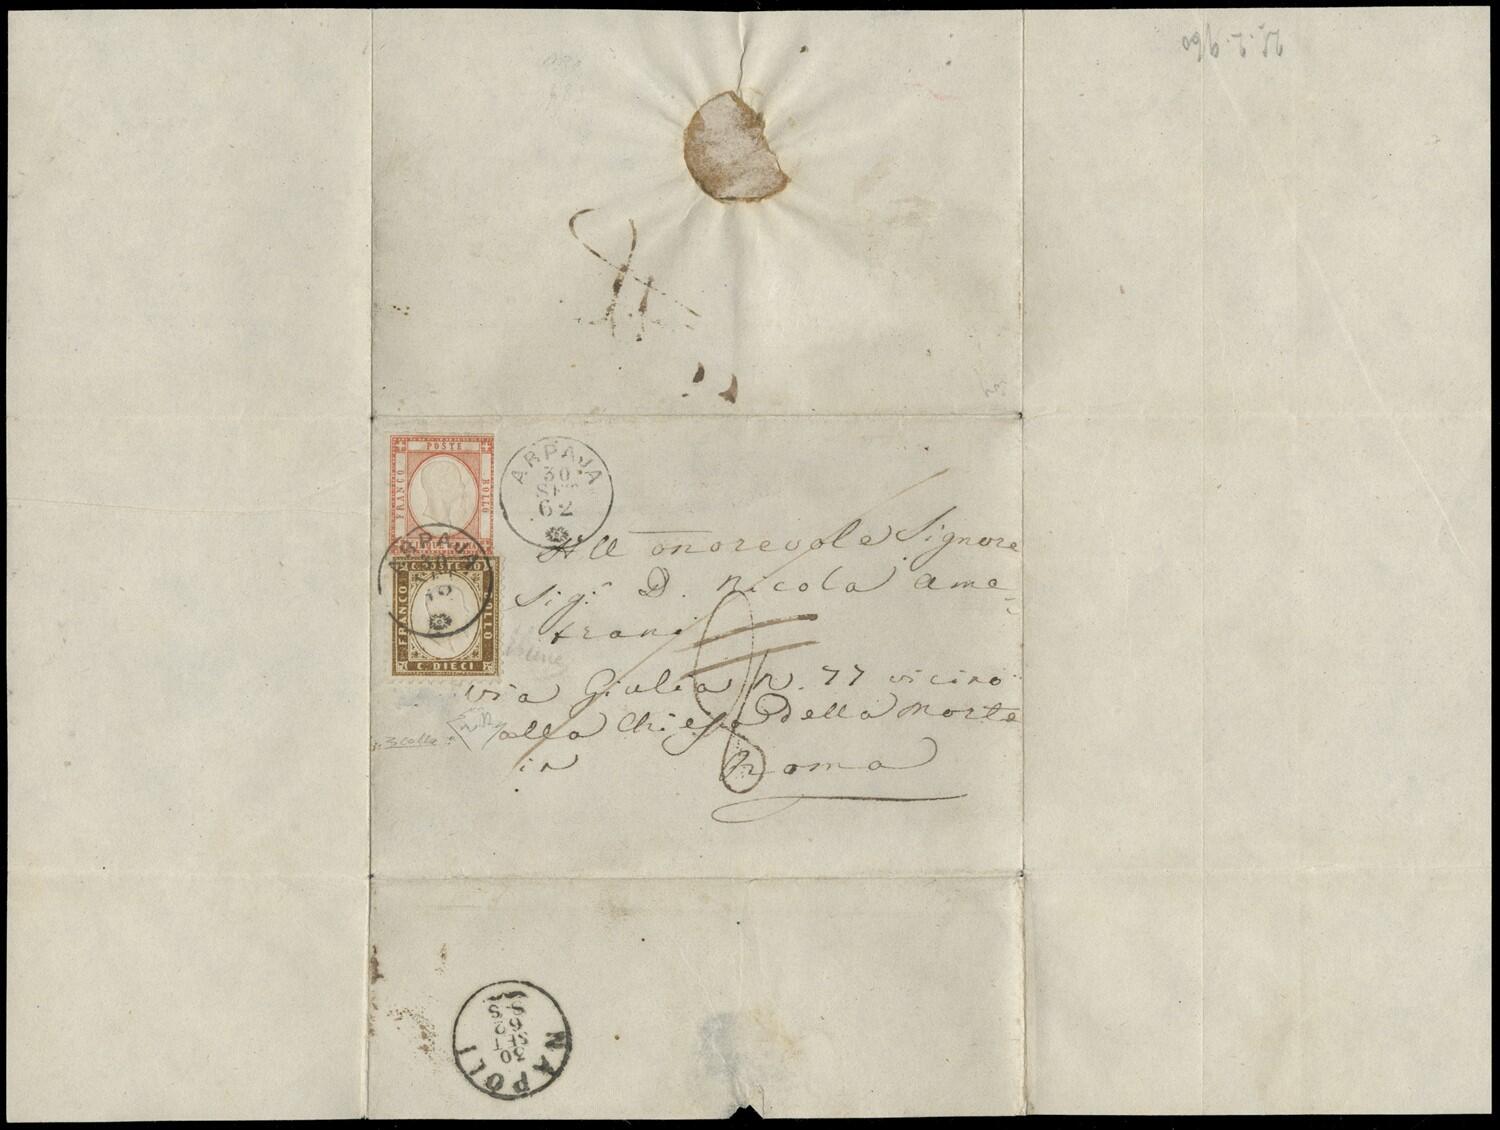 POSTE
FRANCO
BOLLO
ARPAJA
30
62
ARPAJA
C. POSTE 10
FRANCO
BOLLO
C. DIECI
All onorevole Signore
Sig.r D. Nicola Ama=
trani
via Giulia N. 77 vicino
alla Chiesa della Morte
in Roma
NAPOLI